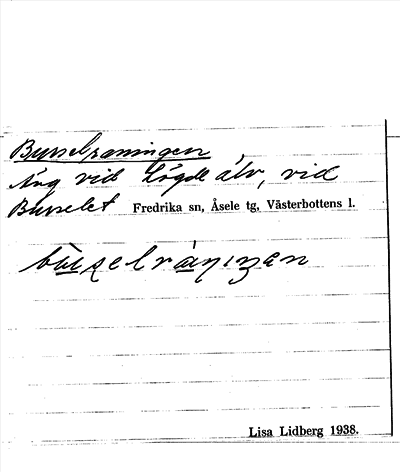 Burselraningen
Äng vid Lögde älv, vid
Burselet Fredrika sn, Åsele tg, Västerbottens l.
Lisa Lidberg 1938.